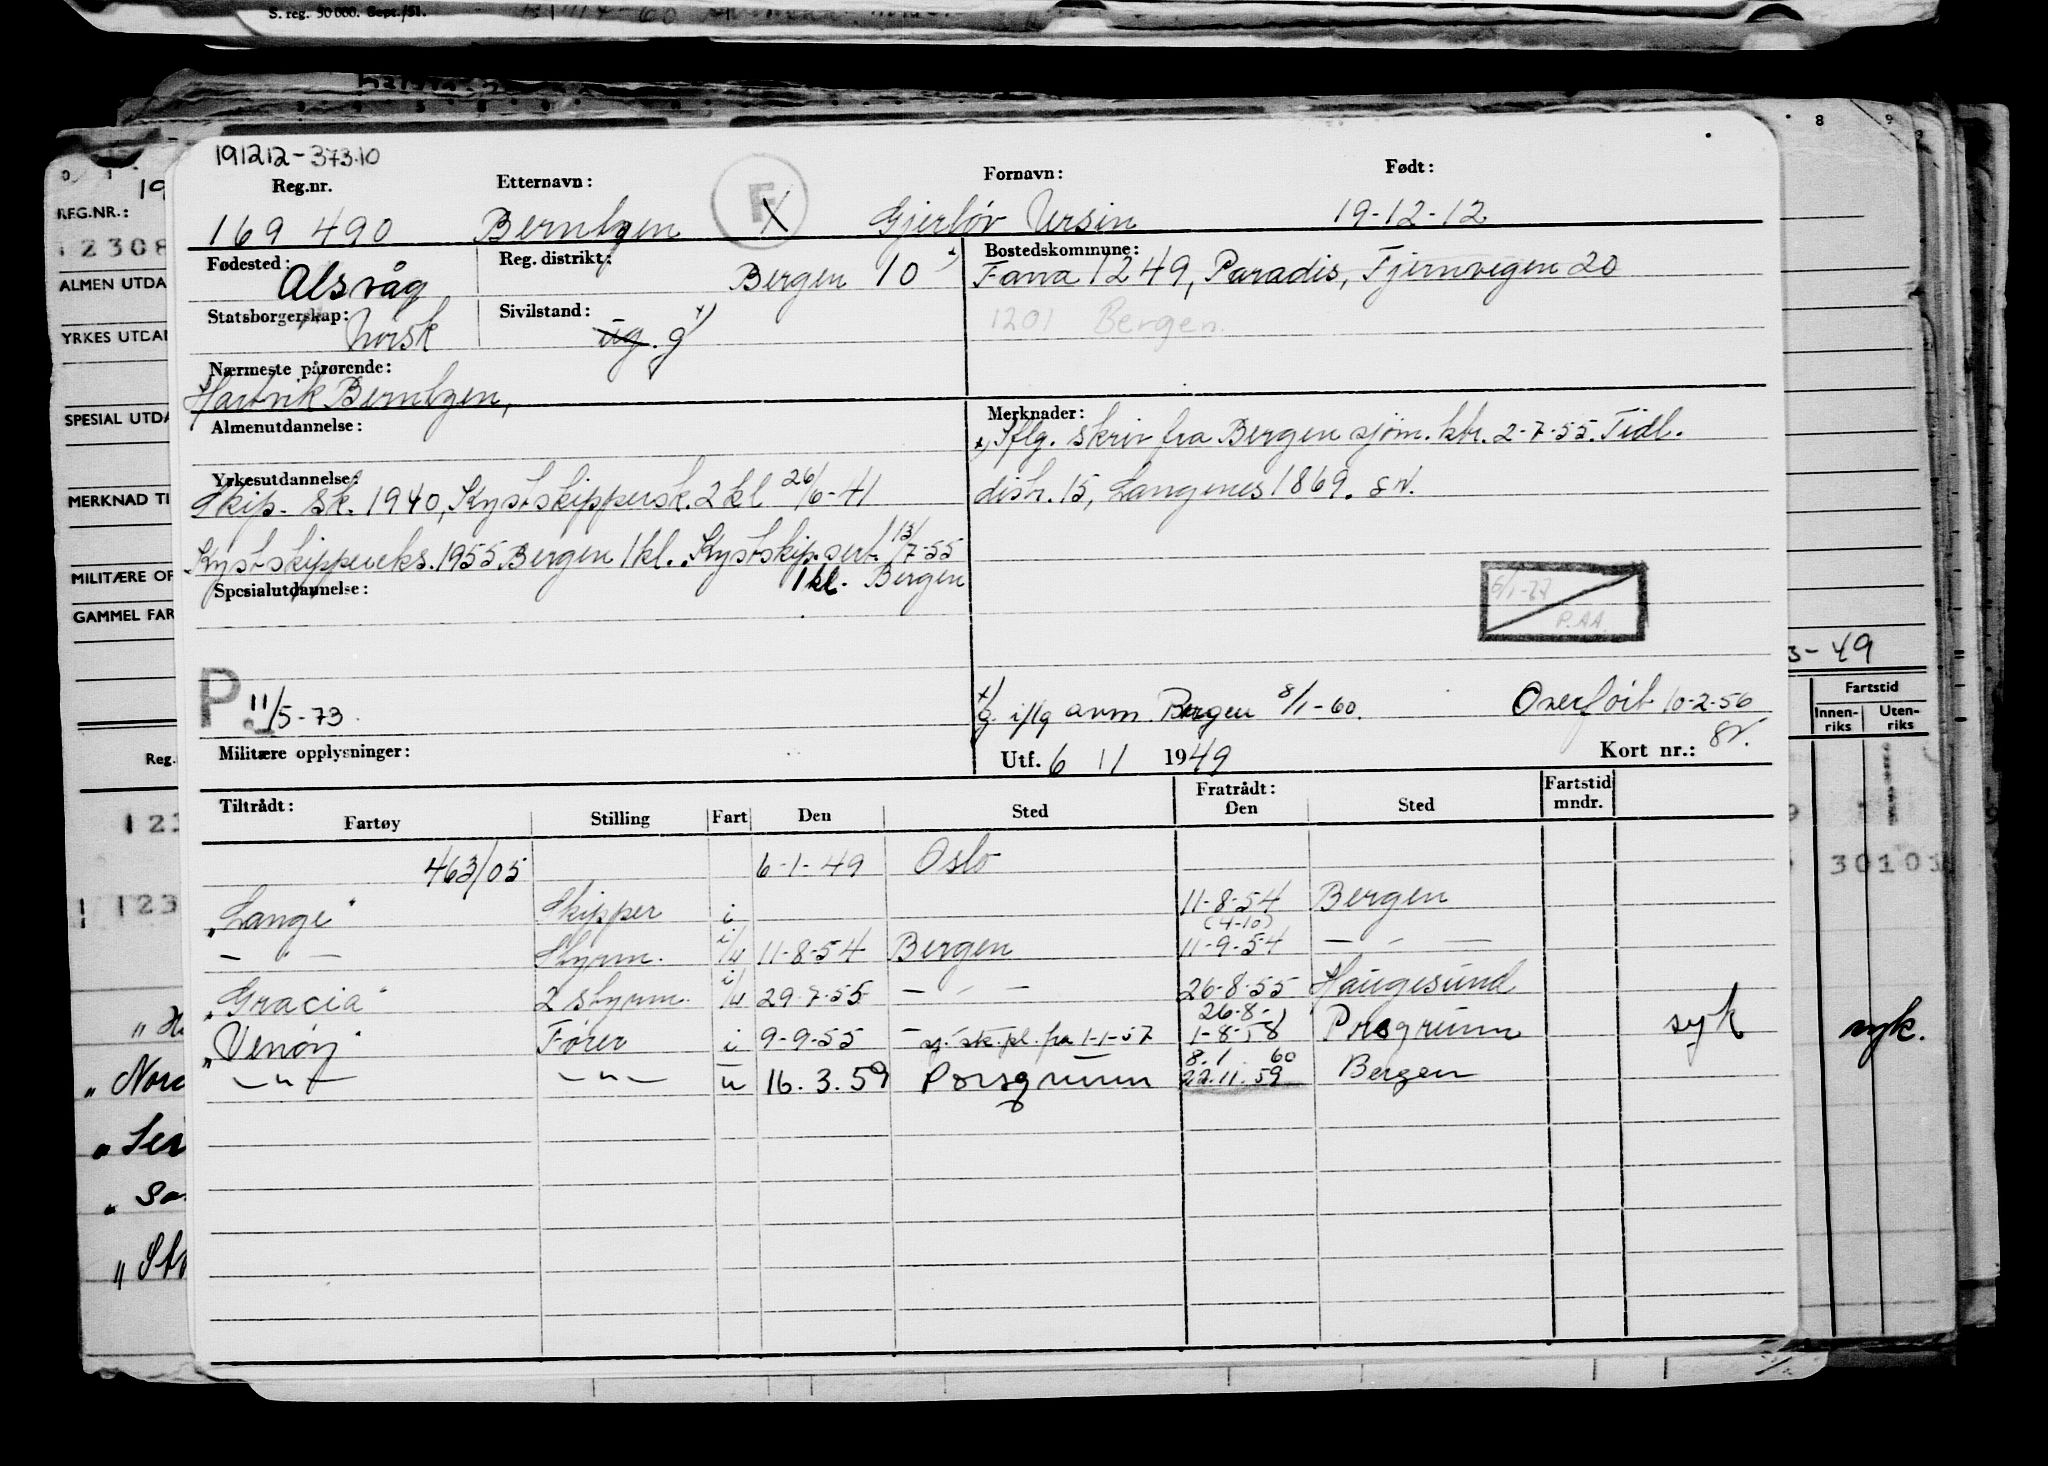 S. reg. 50 000. Sept./51.
191212-373.10
Reg.nr. Etternavn: Fornavn: Født:
169 490 Berntzen F X Gjerløv Ursin 19-12-12
Fødested: Reg. distrikt: Bostedskommune:
Alsvåg Bergen 10 x) Fana 1249, Paradis, Tjernvegen 20
Statsborgerskap: Sivilstand: 1201 Bergen.
Norsk ug. g x)
Nærmeste pårørende:
Hartvik Berntzen,
Almenutdannelse: Merknader:
x, Iflg. skriv fra Bergen sjøm. ktr. 2-7-55. Tidl.
Yrkesutdannelse:
Skip. sk. 1940, Kystskippersk. 2 kl 26/6-41 distr. 15, Langenes 1869. sv.
Kystskippereks. 1955 Bergen 1 kl. Kystskip.sert. 13/7-55
1 kl. Bergen
Spesialutdannelse:
6/1-77
P.AA.
P. 11/5-73.
x) g. iflg anm. Bergen 8/1-60. Overført 10-2-56
sv.
Militære opplysninger: Utf. 6 11 1949 Kort nr.:
Tiltrådt: Fratrådt: Fartstid
Fartøy Stilling Fart Den Sted Den Sted mndr.
463/05 6-1-49 Oslo
"Lange" Skipper i 11-8-54 Bergen
(4-10)
— " — Styrm. i/u 11-8-54 Bergen 11-9-54 — " —
"Gracia" 2 styrm. i/u 29-7-55 — " — 26-8-55 Haugesund
26-8-
"Venøy" Fører i 9-9-55 — " — sj. sk. pl. fra 1-1-57 1-8-58 Porsgrunn syk
8.1 60
— " — — " — u 16.3.59 Porsgrunn 22.11.59 Bergen
REG.NR.:
12308
ALMEN UTDA
YRKES UTDAN
SPECIAL UTDA
MERKNAD TI
MILITÆRE OP
GAMMEL FAR
Reg.
123
123
"Nord
8 9
3-49
Fartstid
Innen-riks Uten-riks
30101
syk.